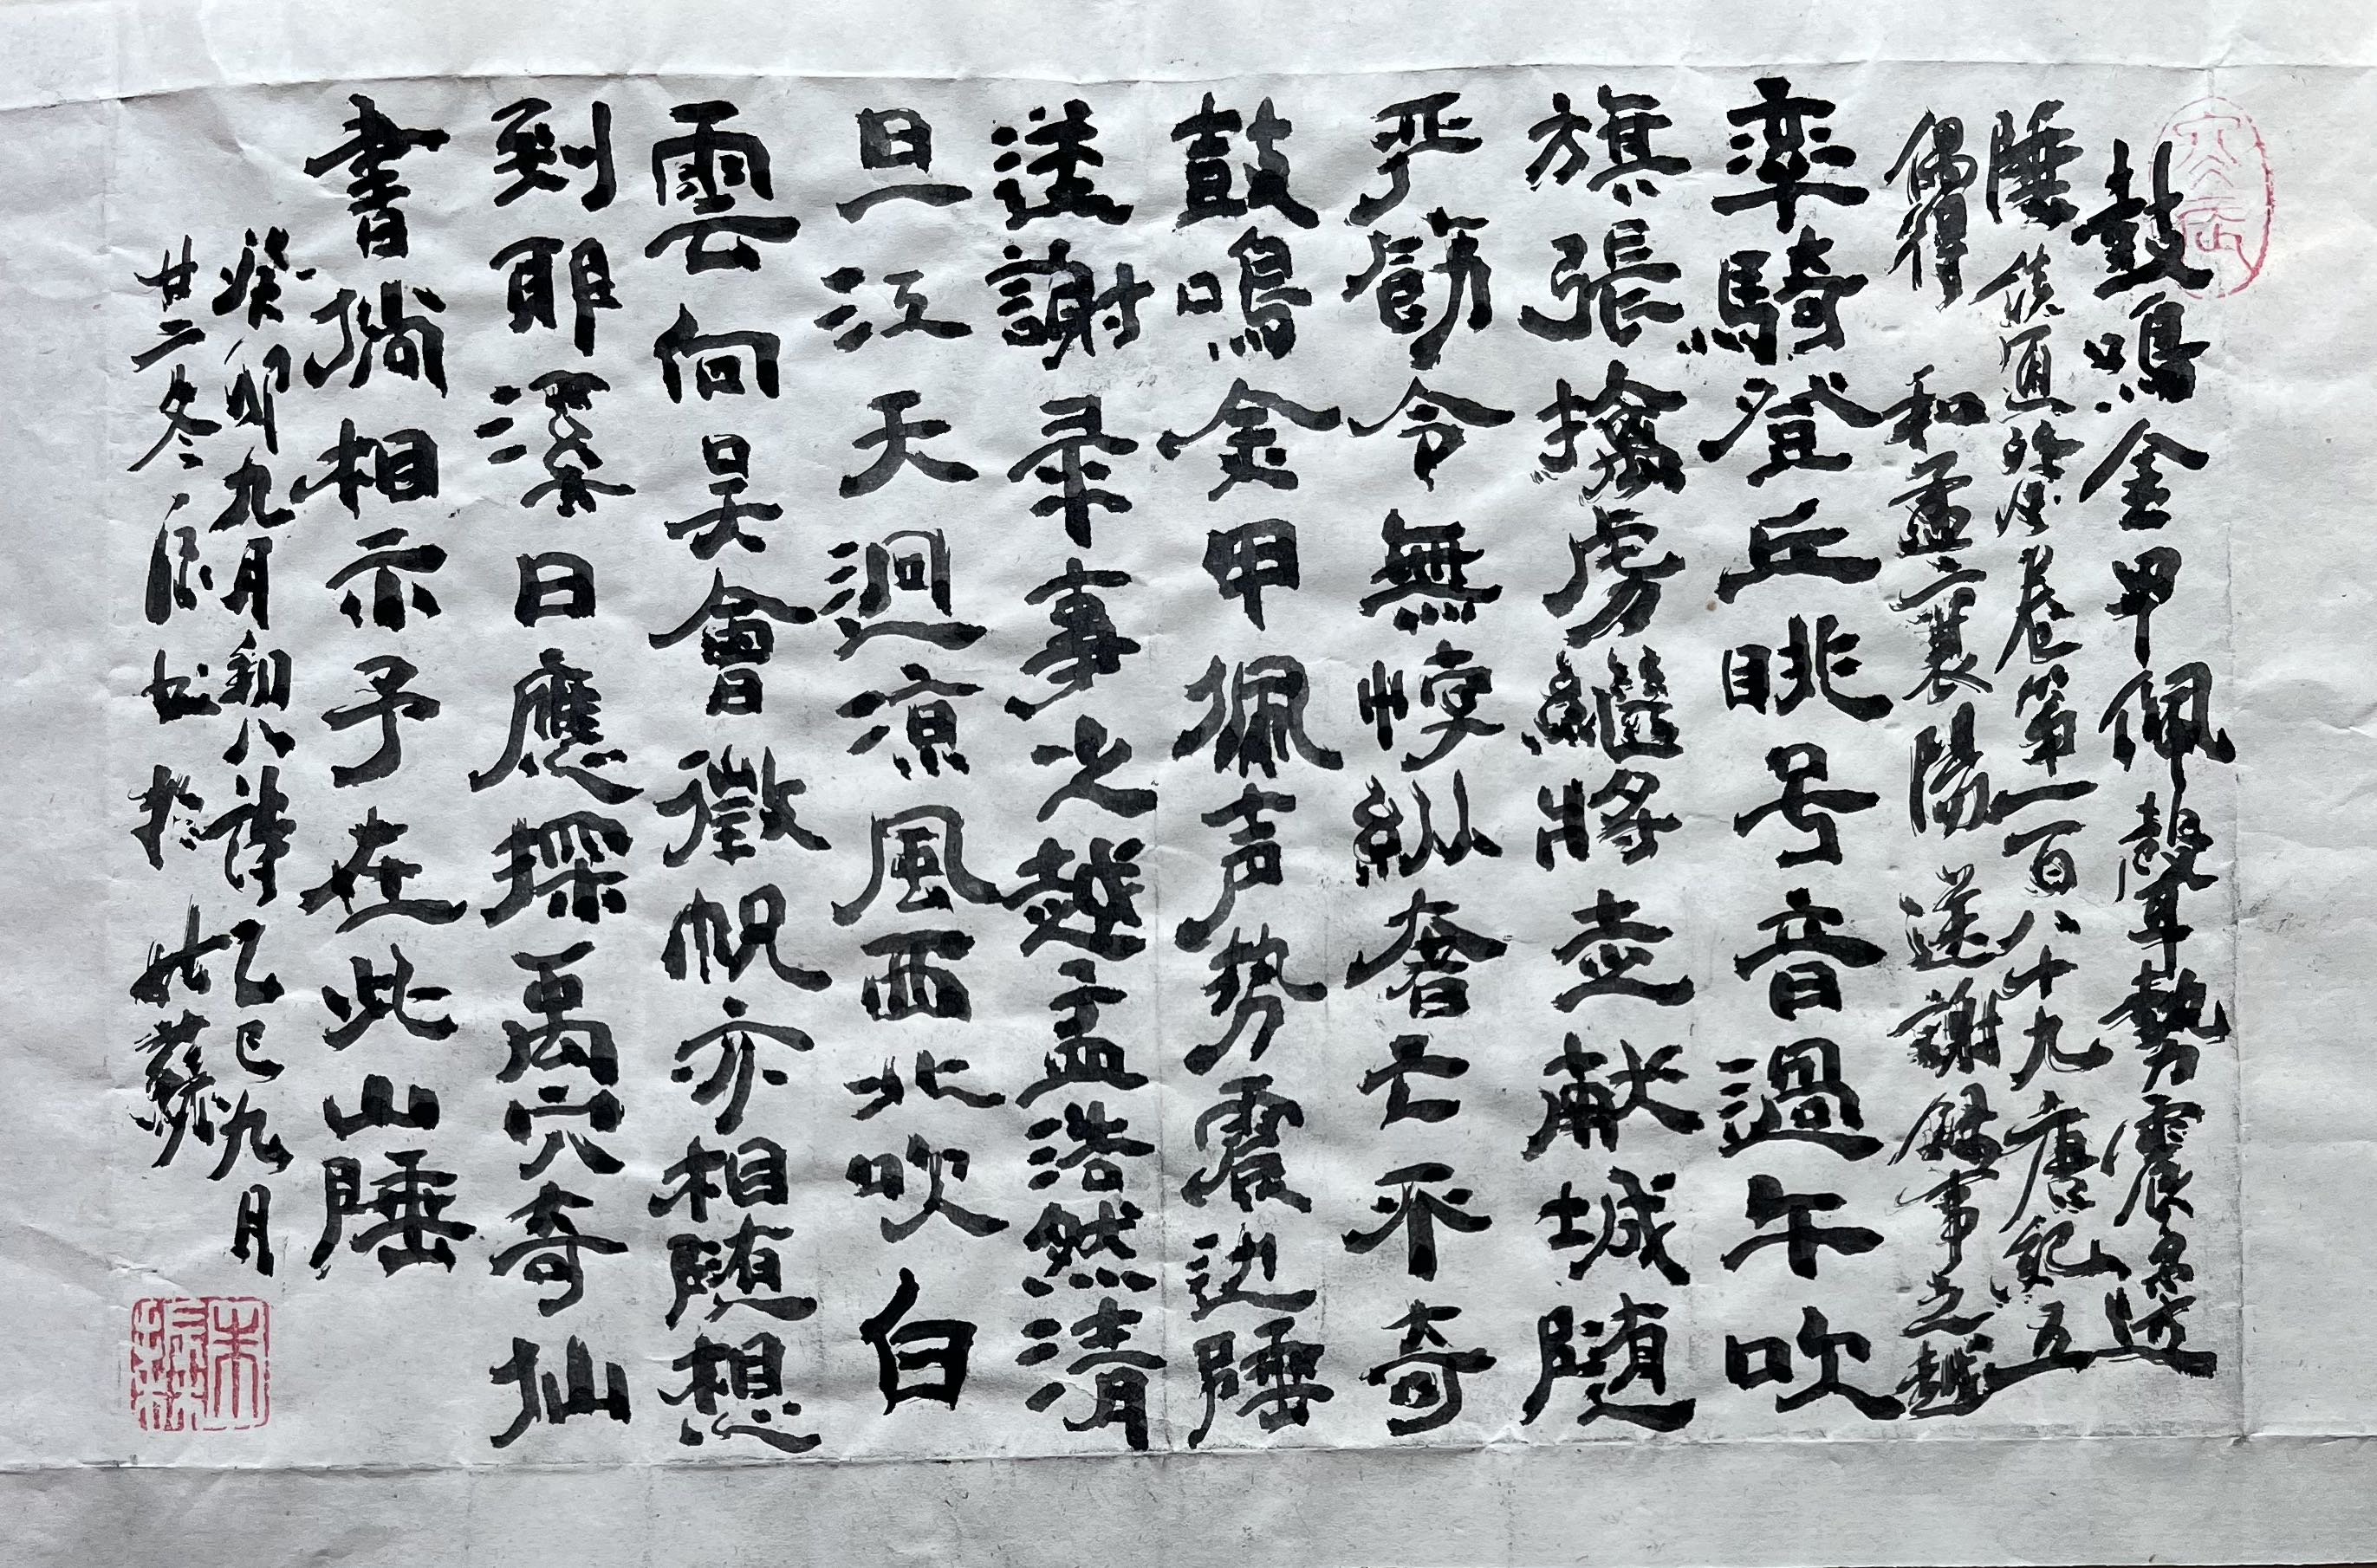 鼓鳴金甲佩聲勢震邊
陲 讀資治通鑑卷第一百八十九唐紀五
偶得 和孟六襄陽送謝錄事之越
率騎登丘眺号音過午吹
旗張擒虏繼將壶献城随
严飭令無悖纵奢亡不奇
鼓鳴金甲佩声势震边陲
送謝录事之越孟浩然清
旦江天迥凉風西北吹白
雲向吴會徵帆亦相随想
到耶溪日應探禹穴奇仙
書倘相示予在此山陲
癸卯九月和八詩乙巳九月
廿二冬 书於姑蘇